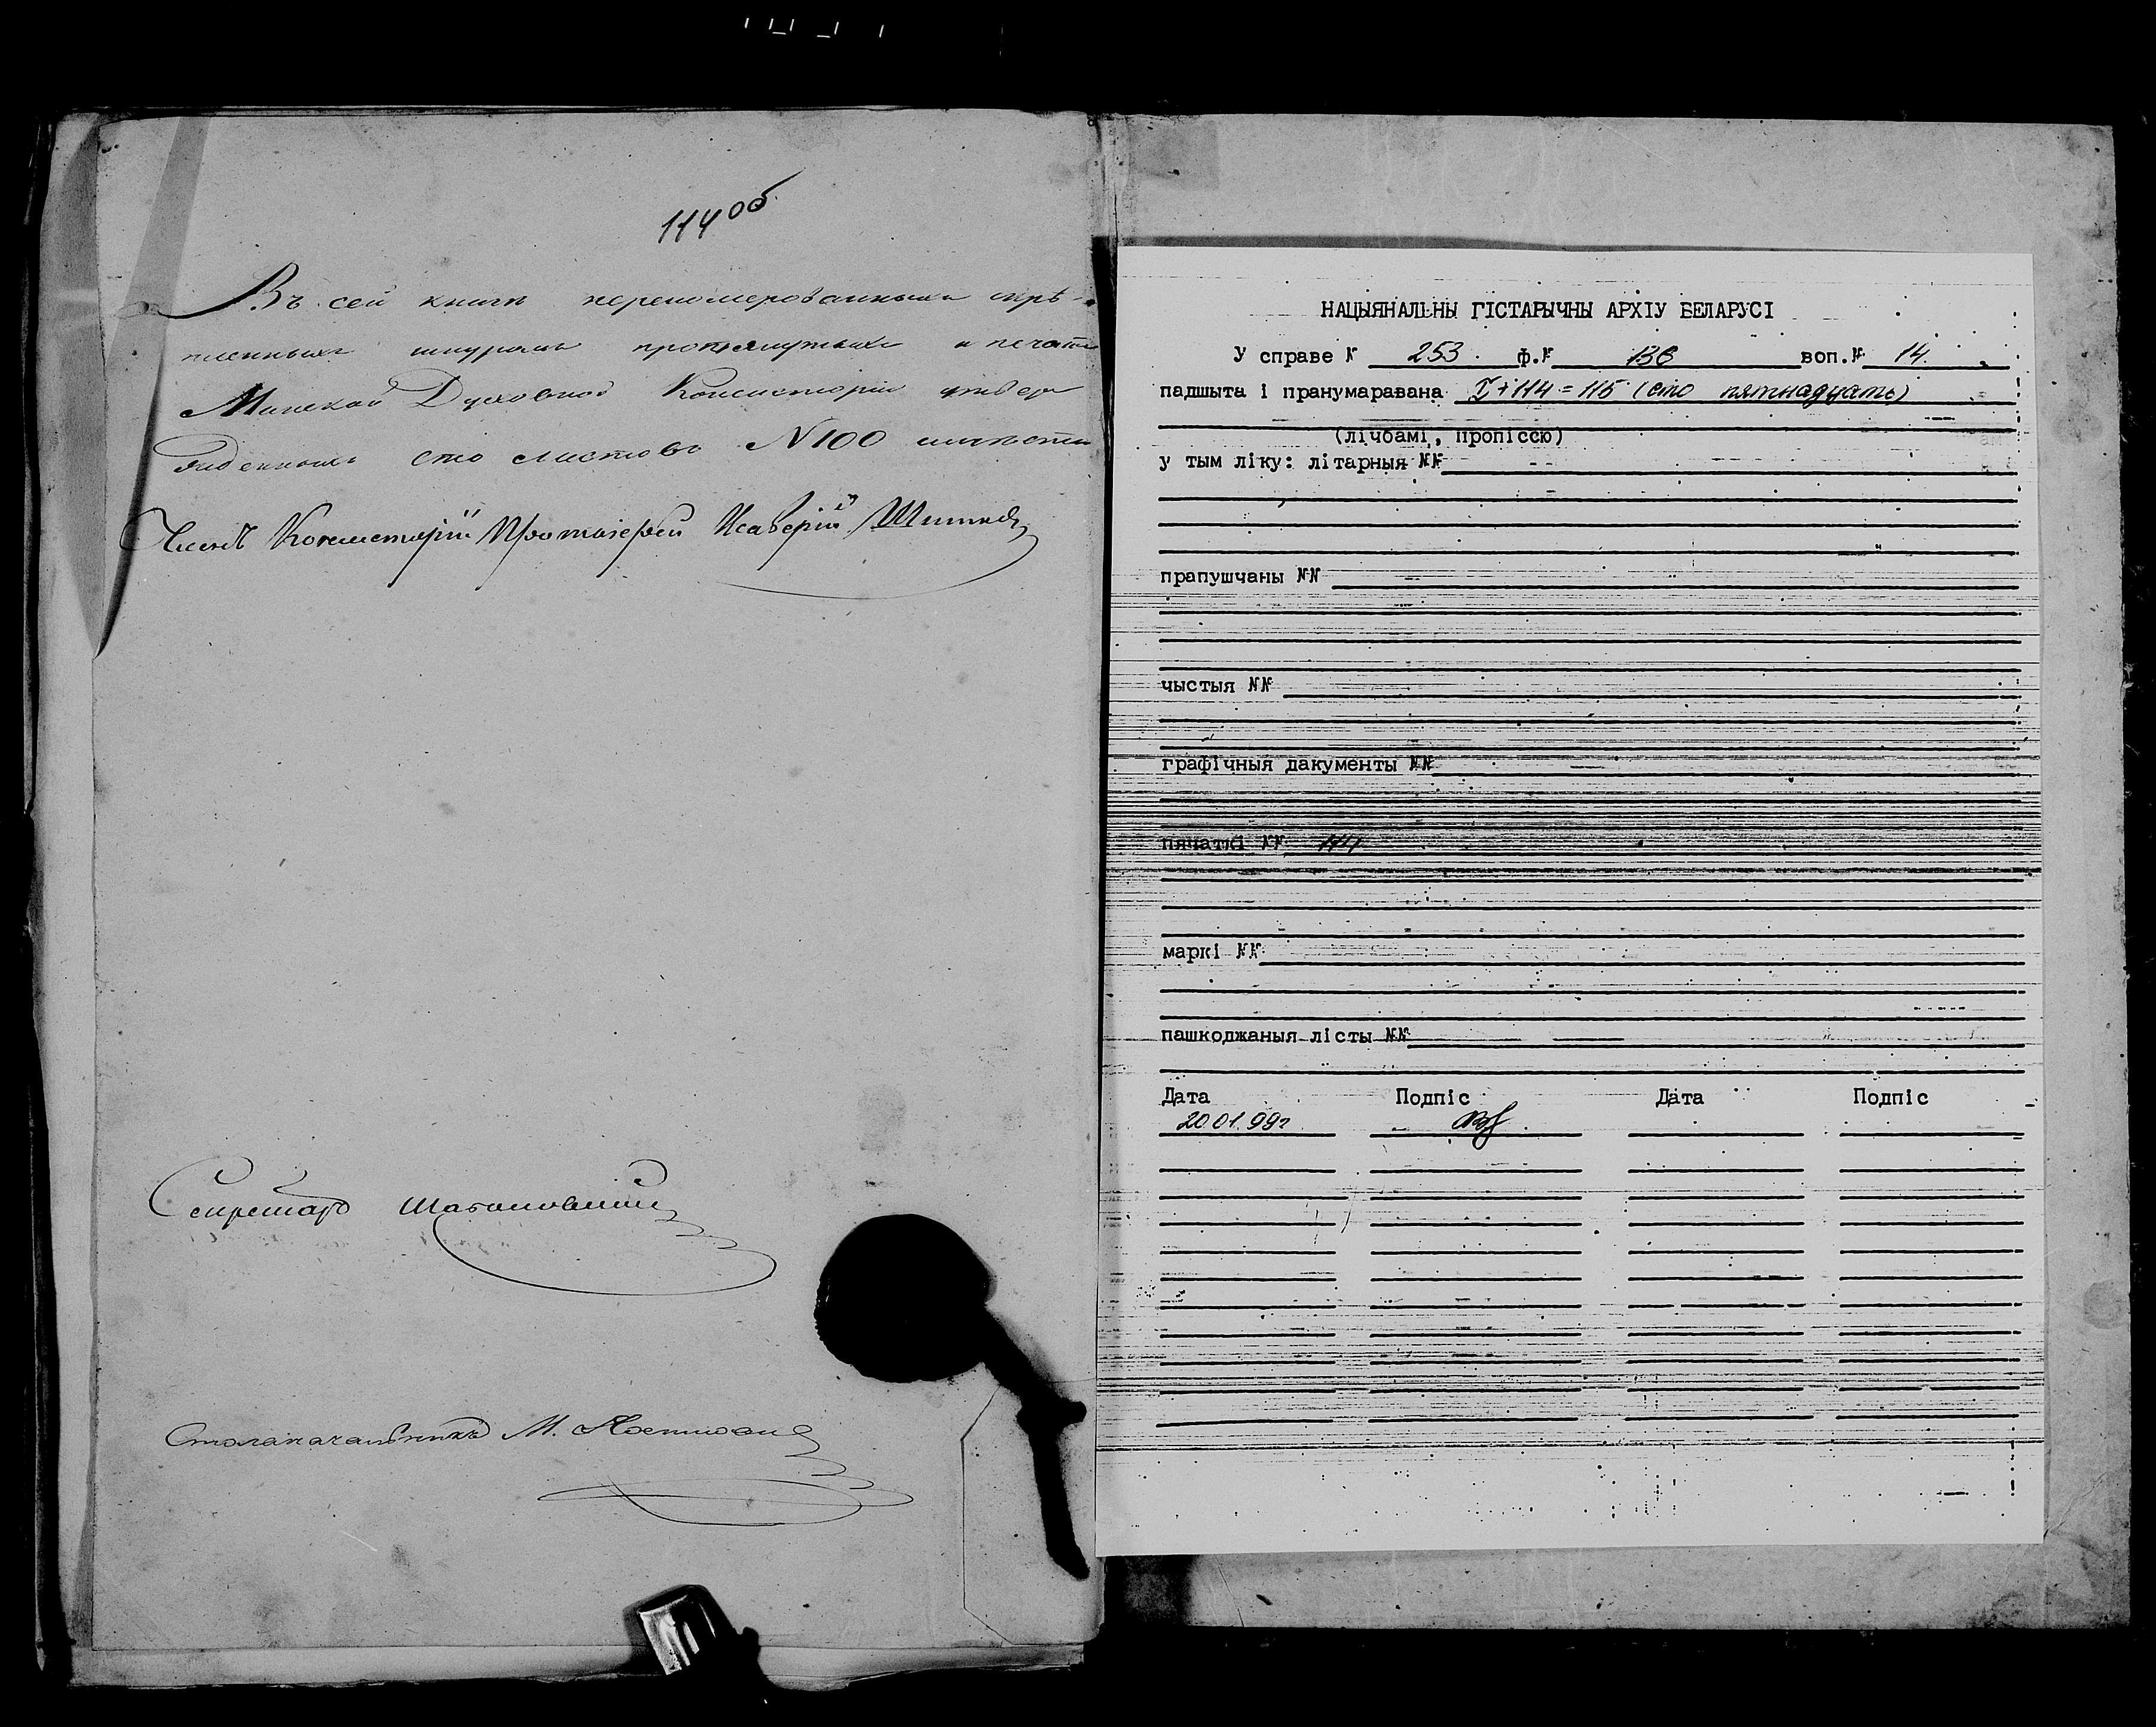 114 об
Въ сей книгѣ перенумерованныхъ скрѣ-
пленныхъ шнуромъ протянутыхъ и печатью
Минской Духовной Консисторіи утвер
жденныхъ сто листовъ N 100
Членъ Консисторіи Протоіерей Ксаверій
Секретарь
Столоначальникъ М.
НАЦЫЯНАЛЬНЫ ГІСТАРЫЧНЫ АРХІУ БЕЛАРУСІ
У справе № 253 ф.№ 136 воп.№ 14
падшыта і пранумаравана I+114=115 (сто пятнадцать)
(лічбамі, пропіссю)
у тым ліку: літарныя №№
прапушчаны №№
чыстыя №№
графічныя дакументы №№
пячаткі №№ 114
маркі №№
пашкоджаныя лісты №№
Дата Подпіс Дата Подпіс
20.01.99г